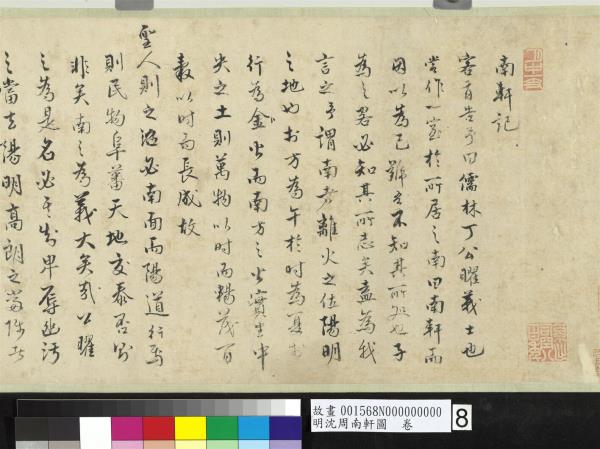 南軒記
客有告予曰儒林丁公曜義士也
嘗作一室於所居之南曰南軒而
因以為己號不知其所也子
為之必知其所志矣盍為我
言之予謂南者離火之位陽明
之地也於方為午於時為夏於
行為火而南方之火實生中
央之土則萬物以時而暢茂百
穀以時而長成故
聖人則之治必南面而陽道行焉
則民物阜蕃天地交泰否則
非矣南之為義大矣哉公曜
之為是名必其知卑辱幽污
之當去陽明高朗之當
故畫 001568N000000000
明沈周南軒圖 卷
8